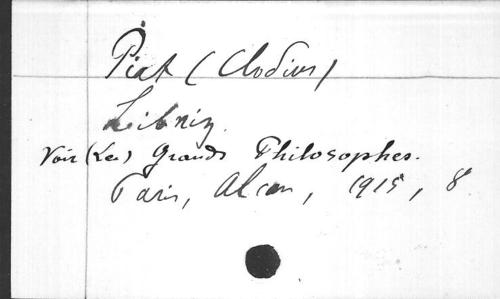 Piat (Clodius)
Leibniz.
Voir (Les) Grands Philosophes.
Paris, Alcan, 1915, 8°